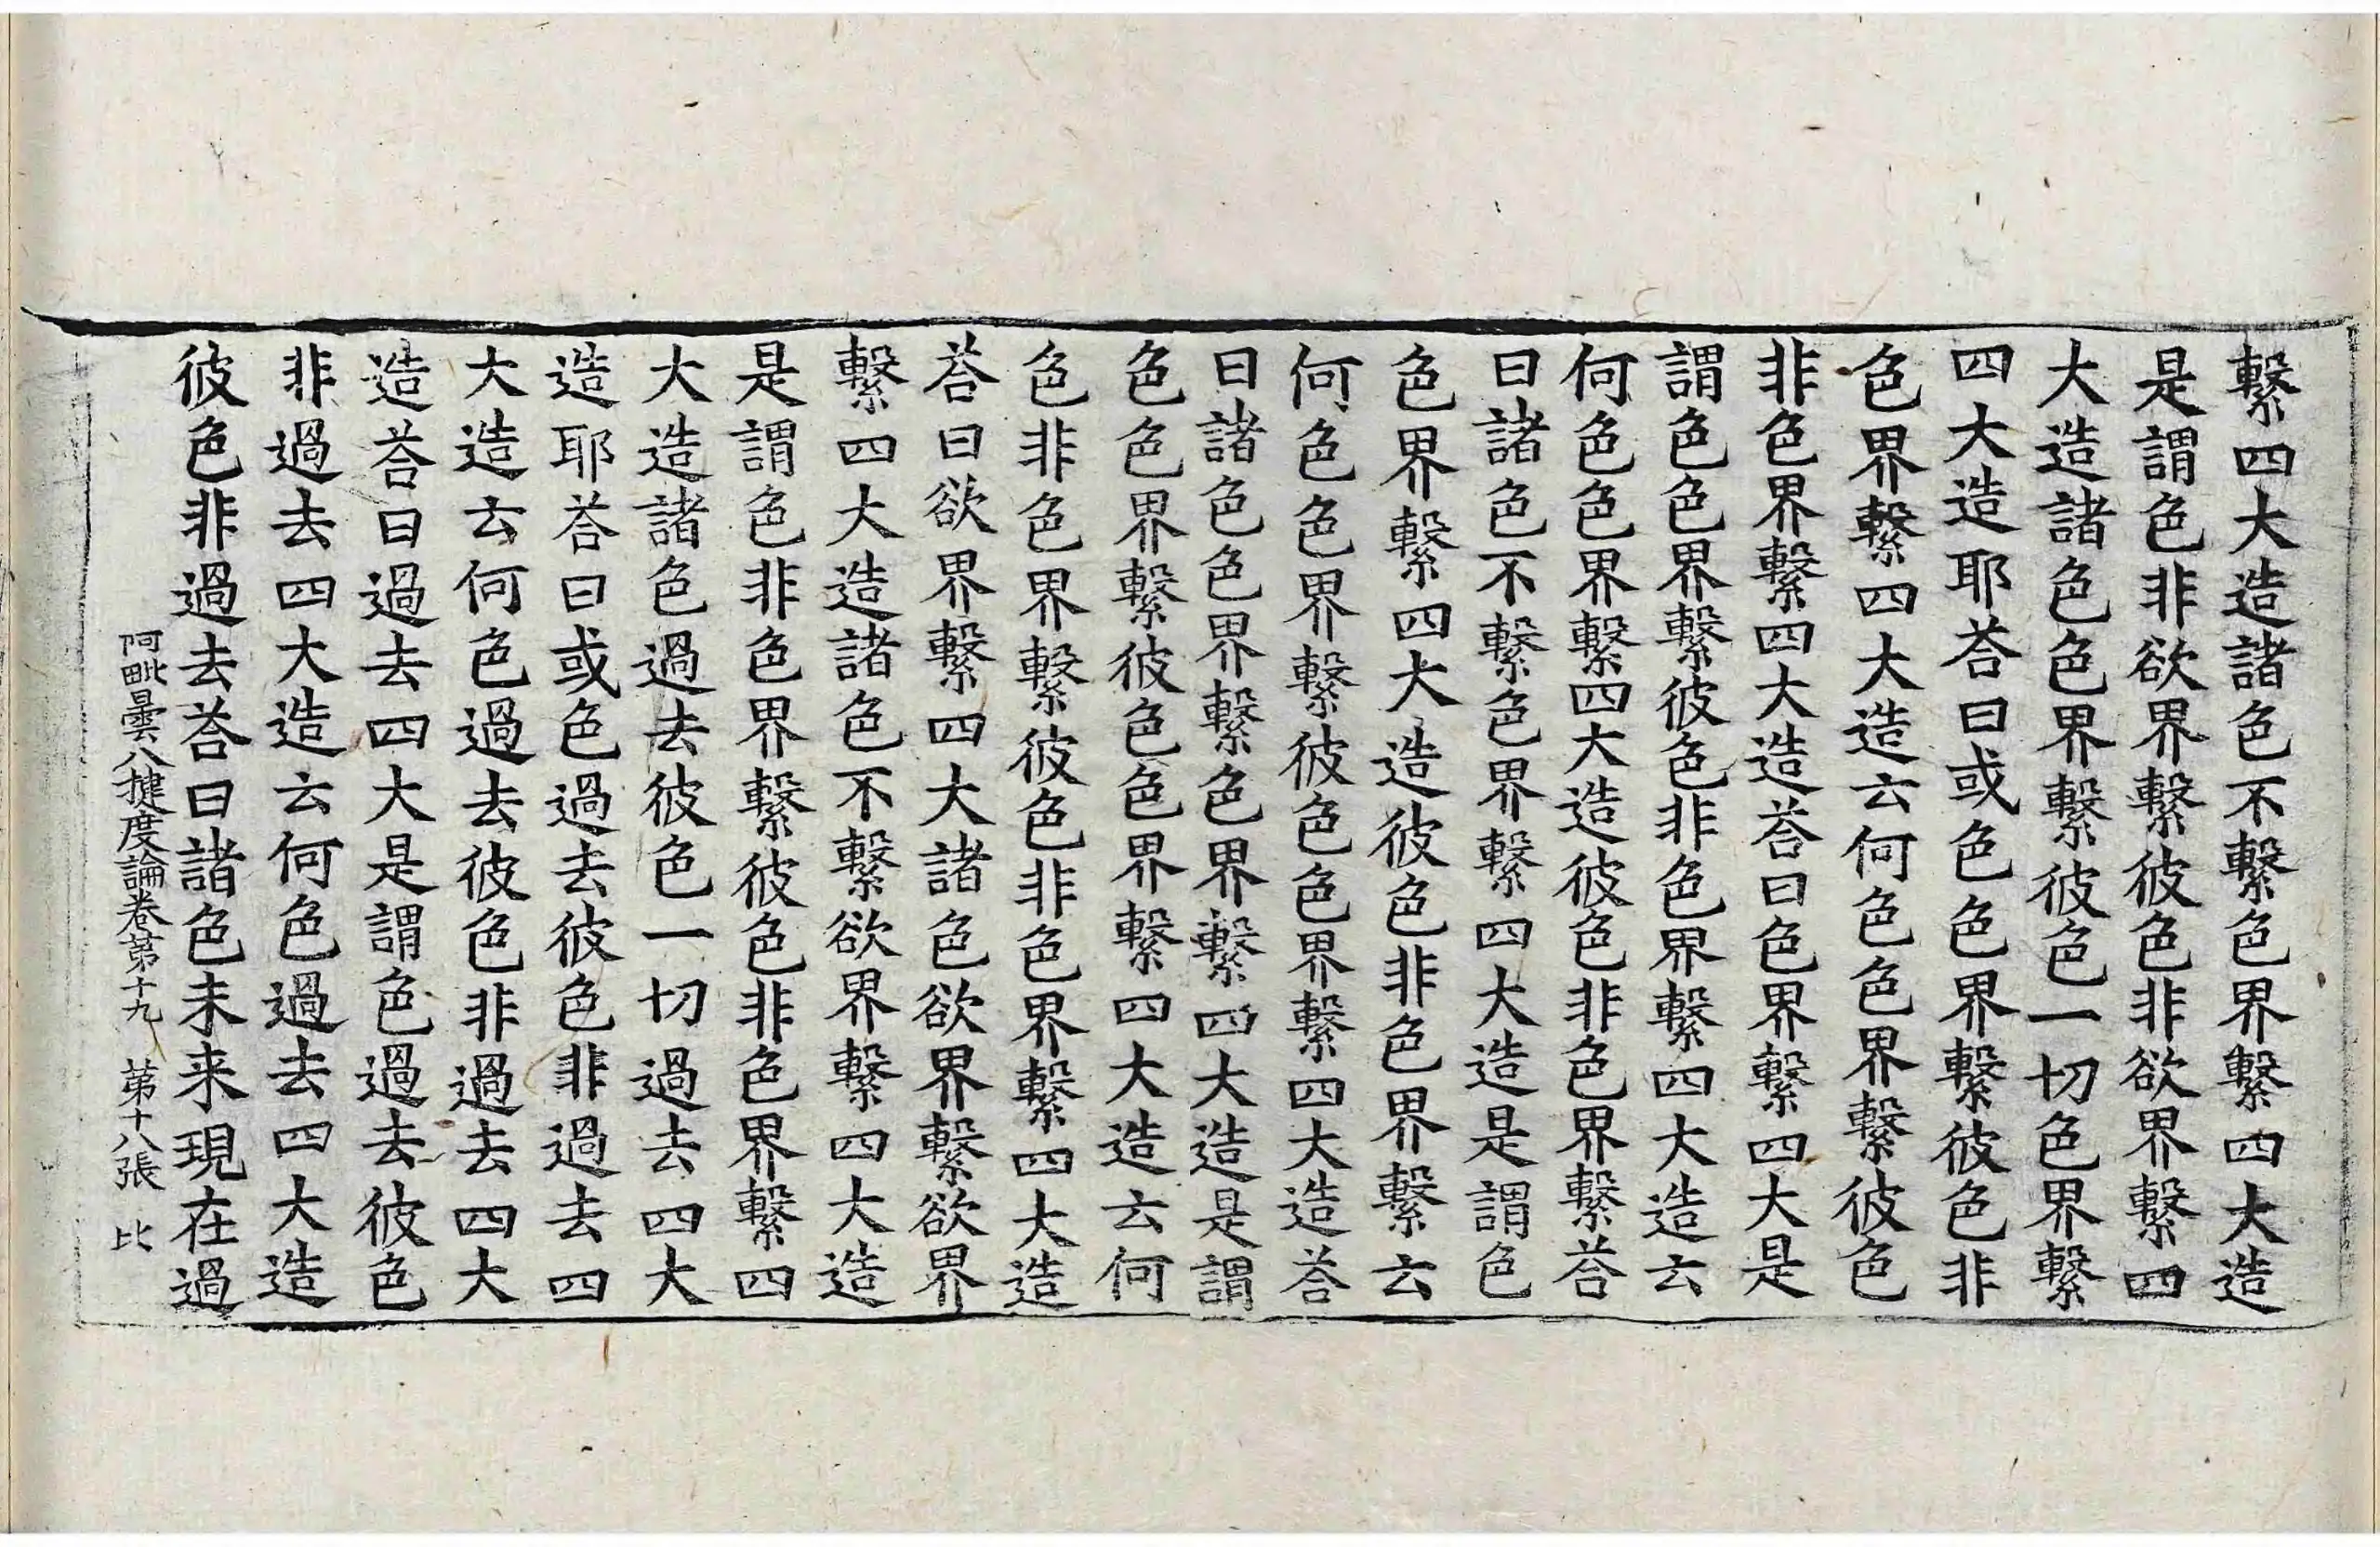 繫四大造諸色不繫色界繫四大造
是謂色非欲界繫彼色非欲界繫四
大造諸色色界繫彼色一切色界繫
四大造耶荅曰或色色界繫彼色非
色界繫四大造云何色色界繫彼色
非色界繫四大造荅曰色界繫四大是
謂色色界繫彼色非色界繫四大造云
何色色界繫四大造彼色非色界繫荅
曰諸色不繫色界繫四大造是謂色
色界繫四大造彼色非色界繫云
何色色界繫彼色色界繫四大造荅
曰諸色色界繫色界繫四大造是謂
色色界繫彼色色界繫四大造云何
色非色界繫彼色非色界繫四大造
荅曰欲界繫四大諸色欲界繫欲界
繫四大造諸色不繫欲界繫四大造
是謂色非色界繫彼色非色界繫四
大造諸色過去彼色一切過去四大
造耶荅曰或色過去彼色非過去四
大造云何色過去彼色非過去四大
造荅曰過去四大是謂色過去彼色
非過去四大造云何色過去四大造
彼色非過去荅曰諸色未来現在過
阿毗曇八揵度論卷第十九 第十八張 比